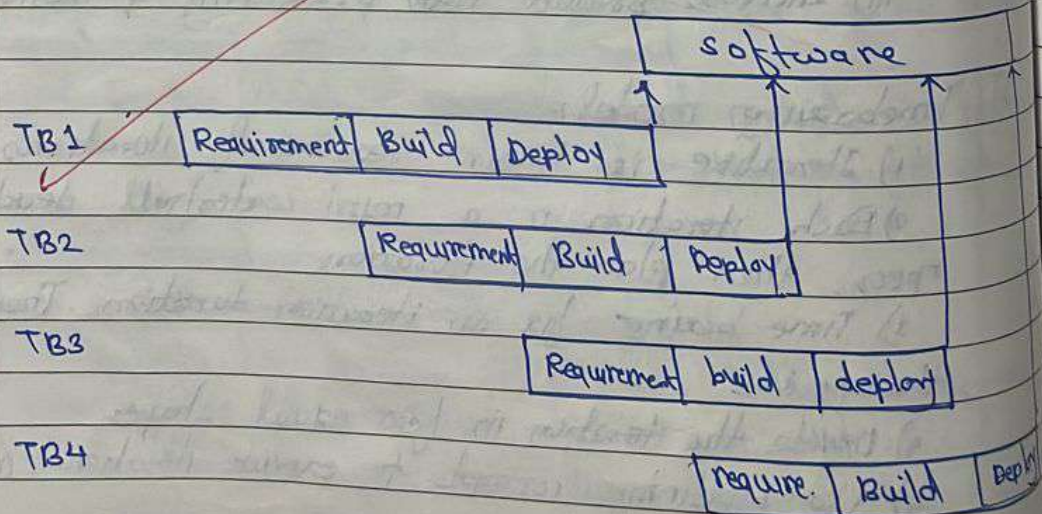 software
TB1 Requirement Build Deploy
TB2 Requirement Build Deploy
TB3 Requirement build deploy
TB4 require. Build Deploy